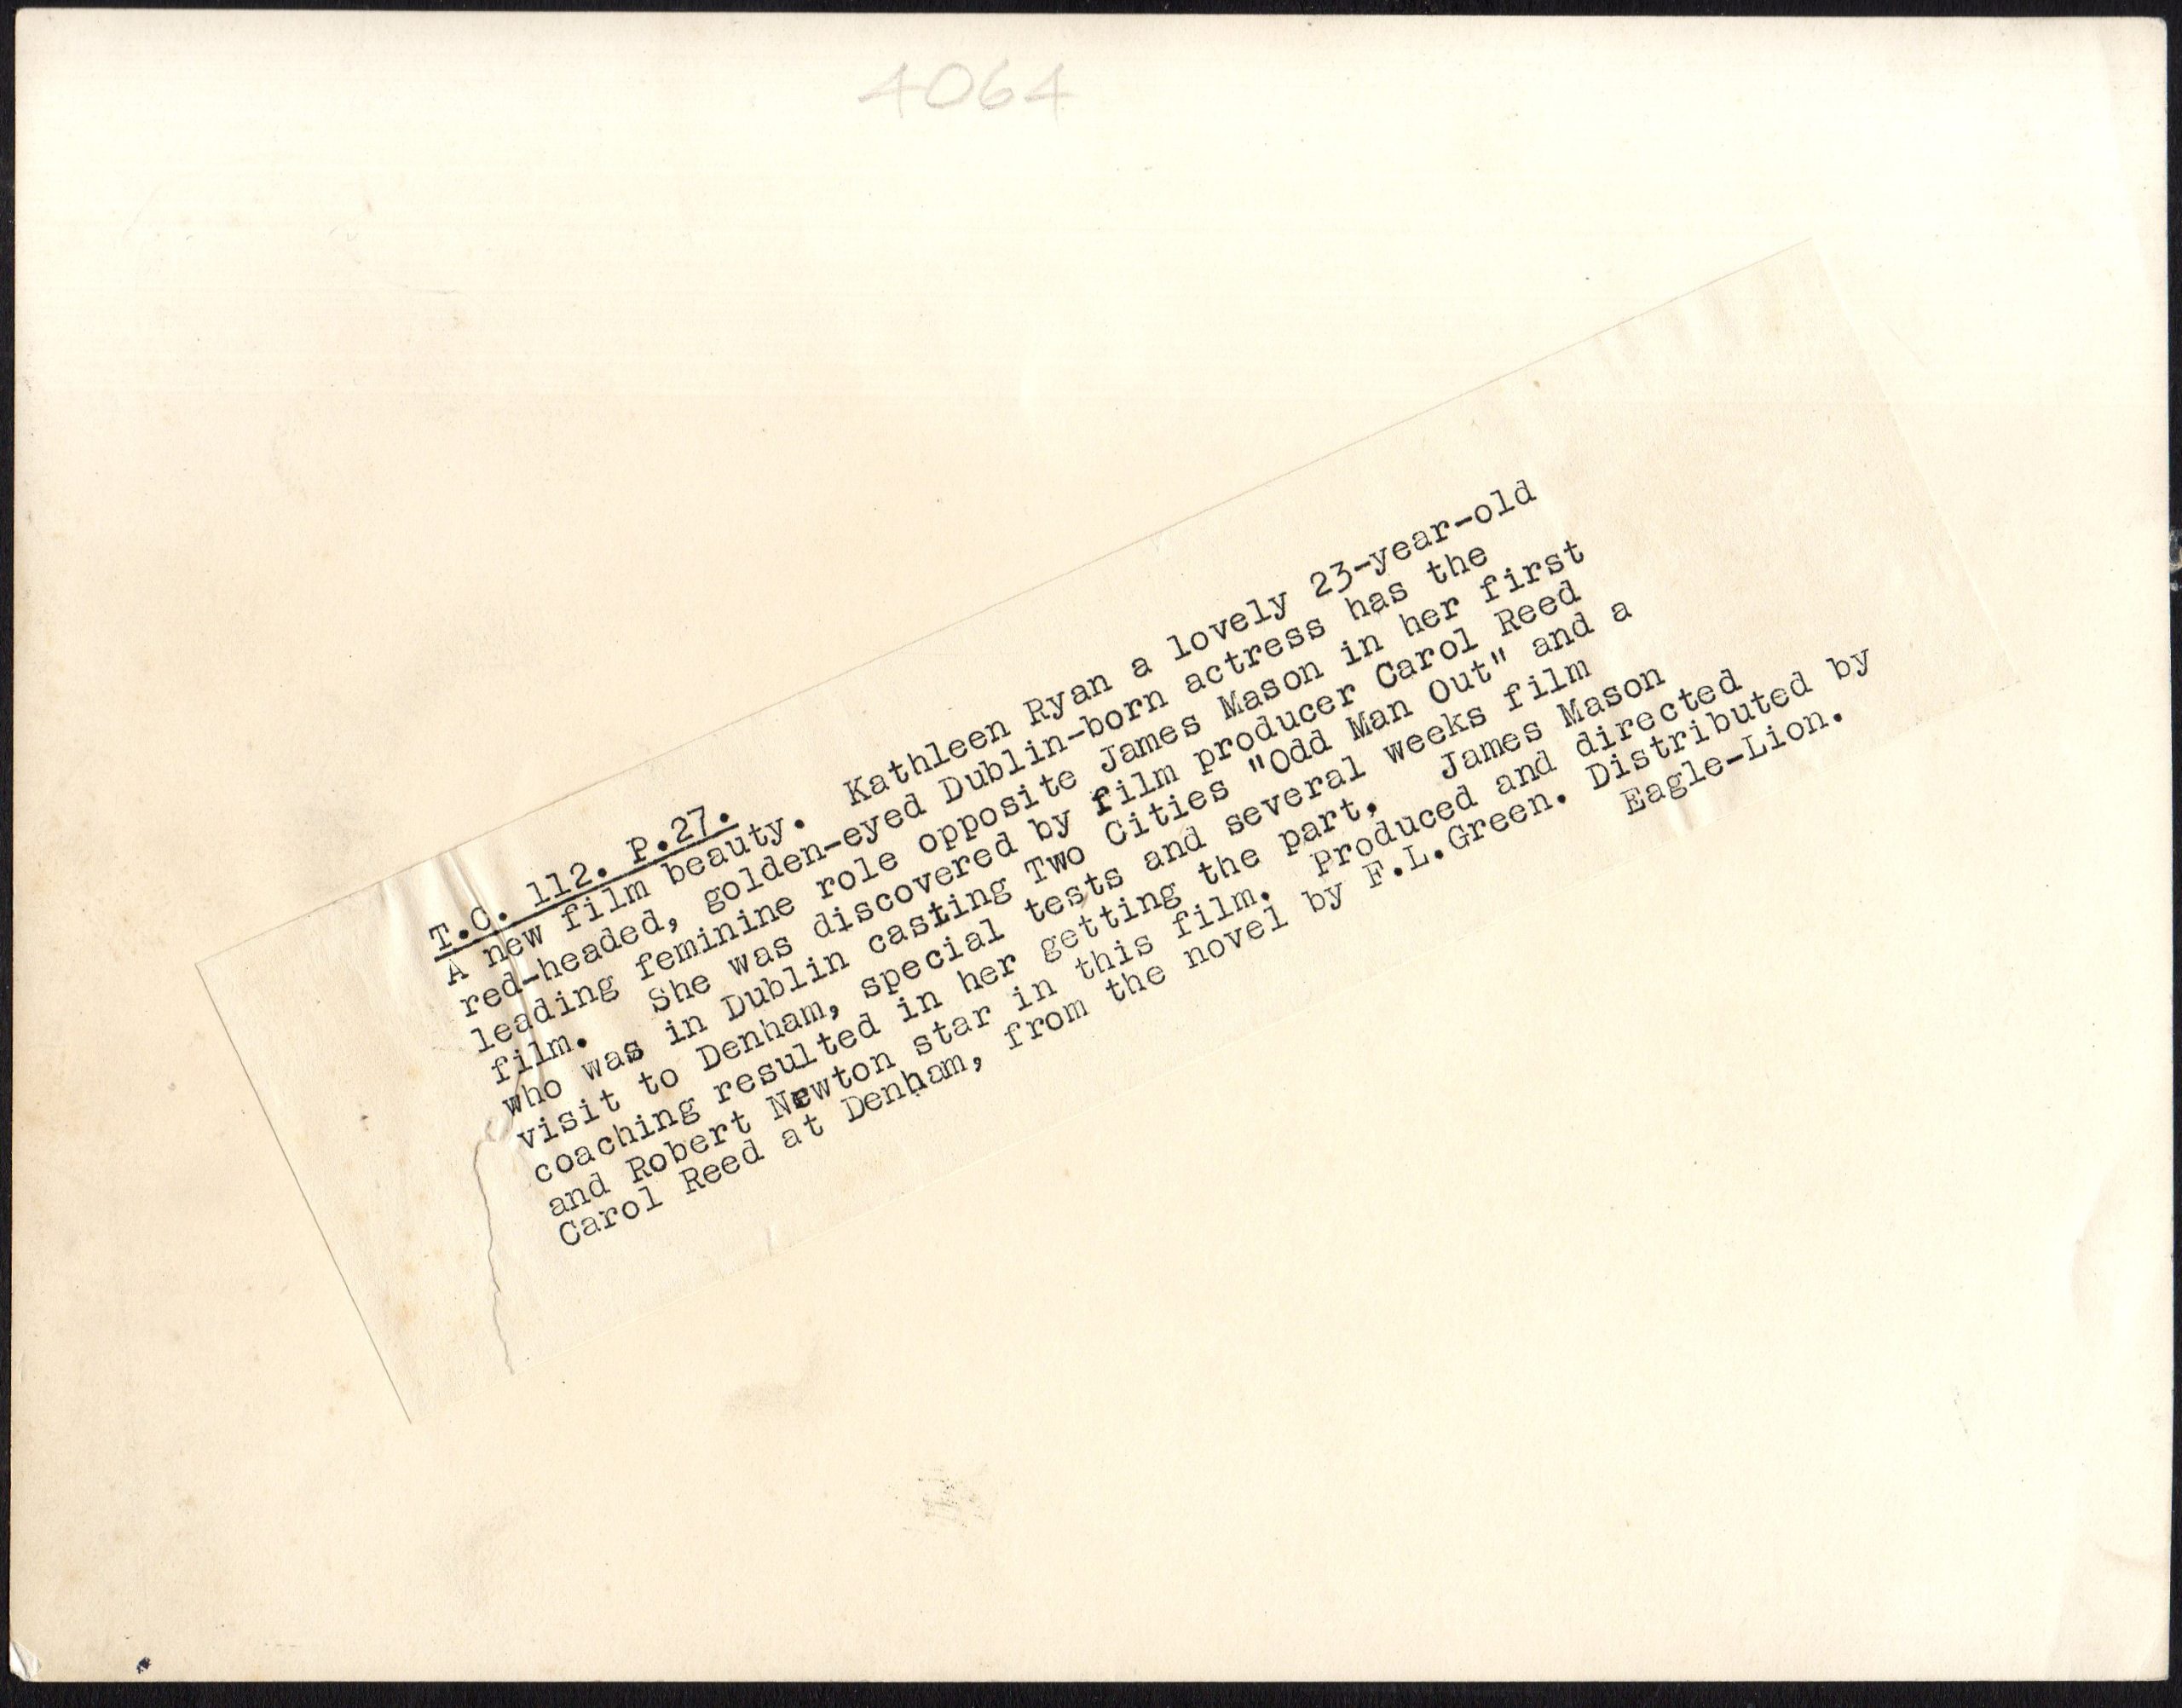 4064
T.C. 112. P.27.
A new film beauty. Kathleen Ryan a lovely 23-year-old
red-headed, golden-eyed Dublin-born actress has the
leading feminine role opposite James Mason in her first
film. She was discovered by film producer Carol Reed
who was in Dublin casting Two Cities "Odd Man Out" and a
visit to Denham, special tests and several weeks film
coaching resulted in her getting the part. James Mason
and Robert Newton star in this film. Produced and directed
Carol Reed at Denham, from the novel by F.L.Green. Distributed by
Eagle-Lion.